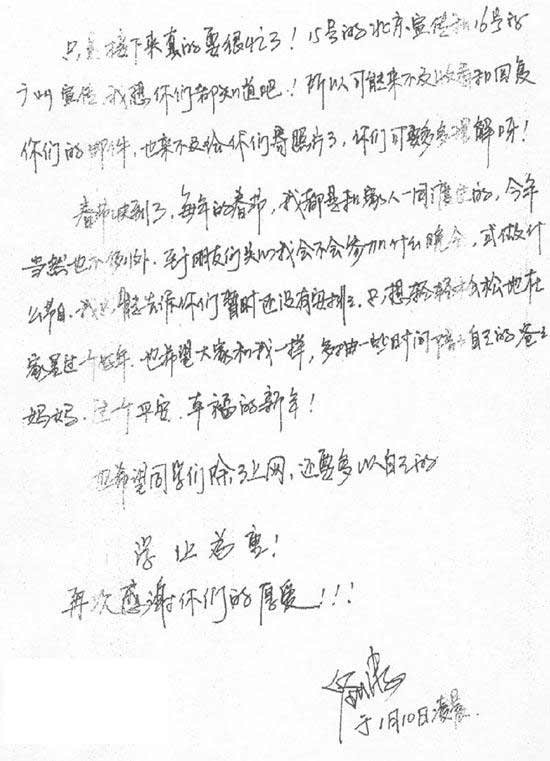 只是接下来真的要很忙了！15号的北京宣传和16号的
广州宣传，我想你们都知道吧！所以可能来不及收看和回复
你们的邮件，也来不及给你们寄照片了，你们可要多多理解呀！
春节快到了，每年的春节，我都是和家人一同度过的，今年
当然也不例外．至于朋友们关心我会不会参加什么晚会，或做什
么节目．我只能告诉你们暂时还没有安排．只想轻轻松松地在
家里过个好年．也希望大家和我一样，多抽一些时间陪自己的爸爸
妈妈．过个平安．幸福的新年！
也希望同学们除了上网，还要多以自己的
学业为重！
再次感谢你们的厚爱！！！
于1月10日凌晨．